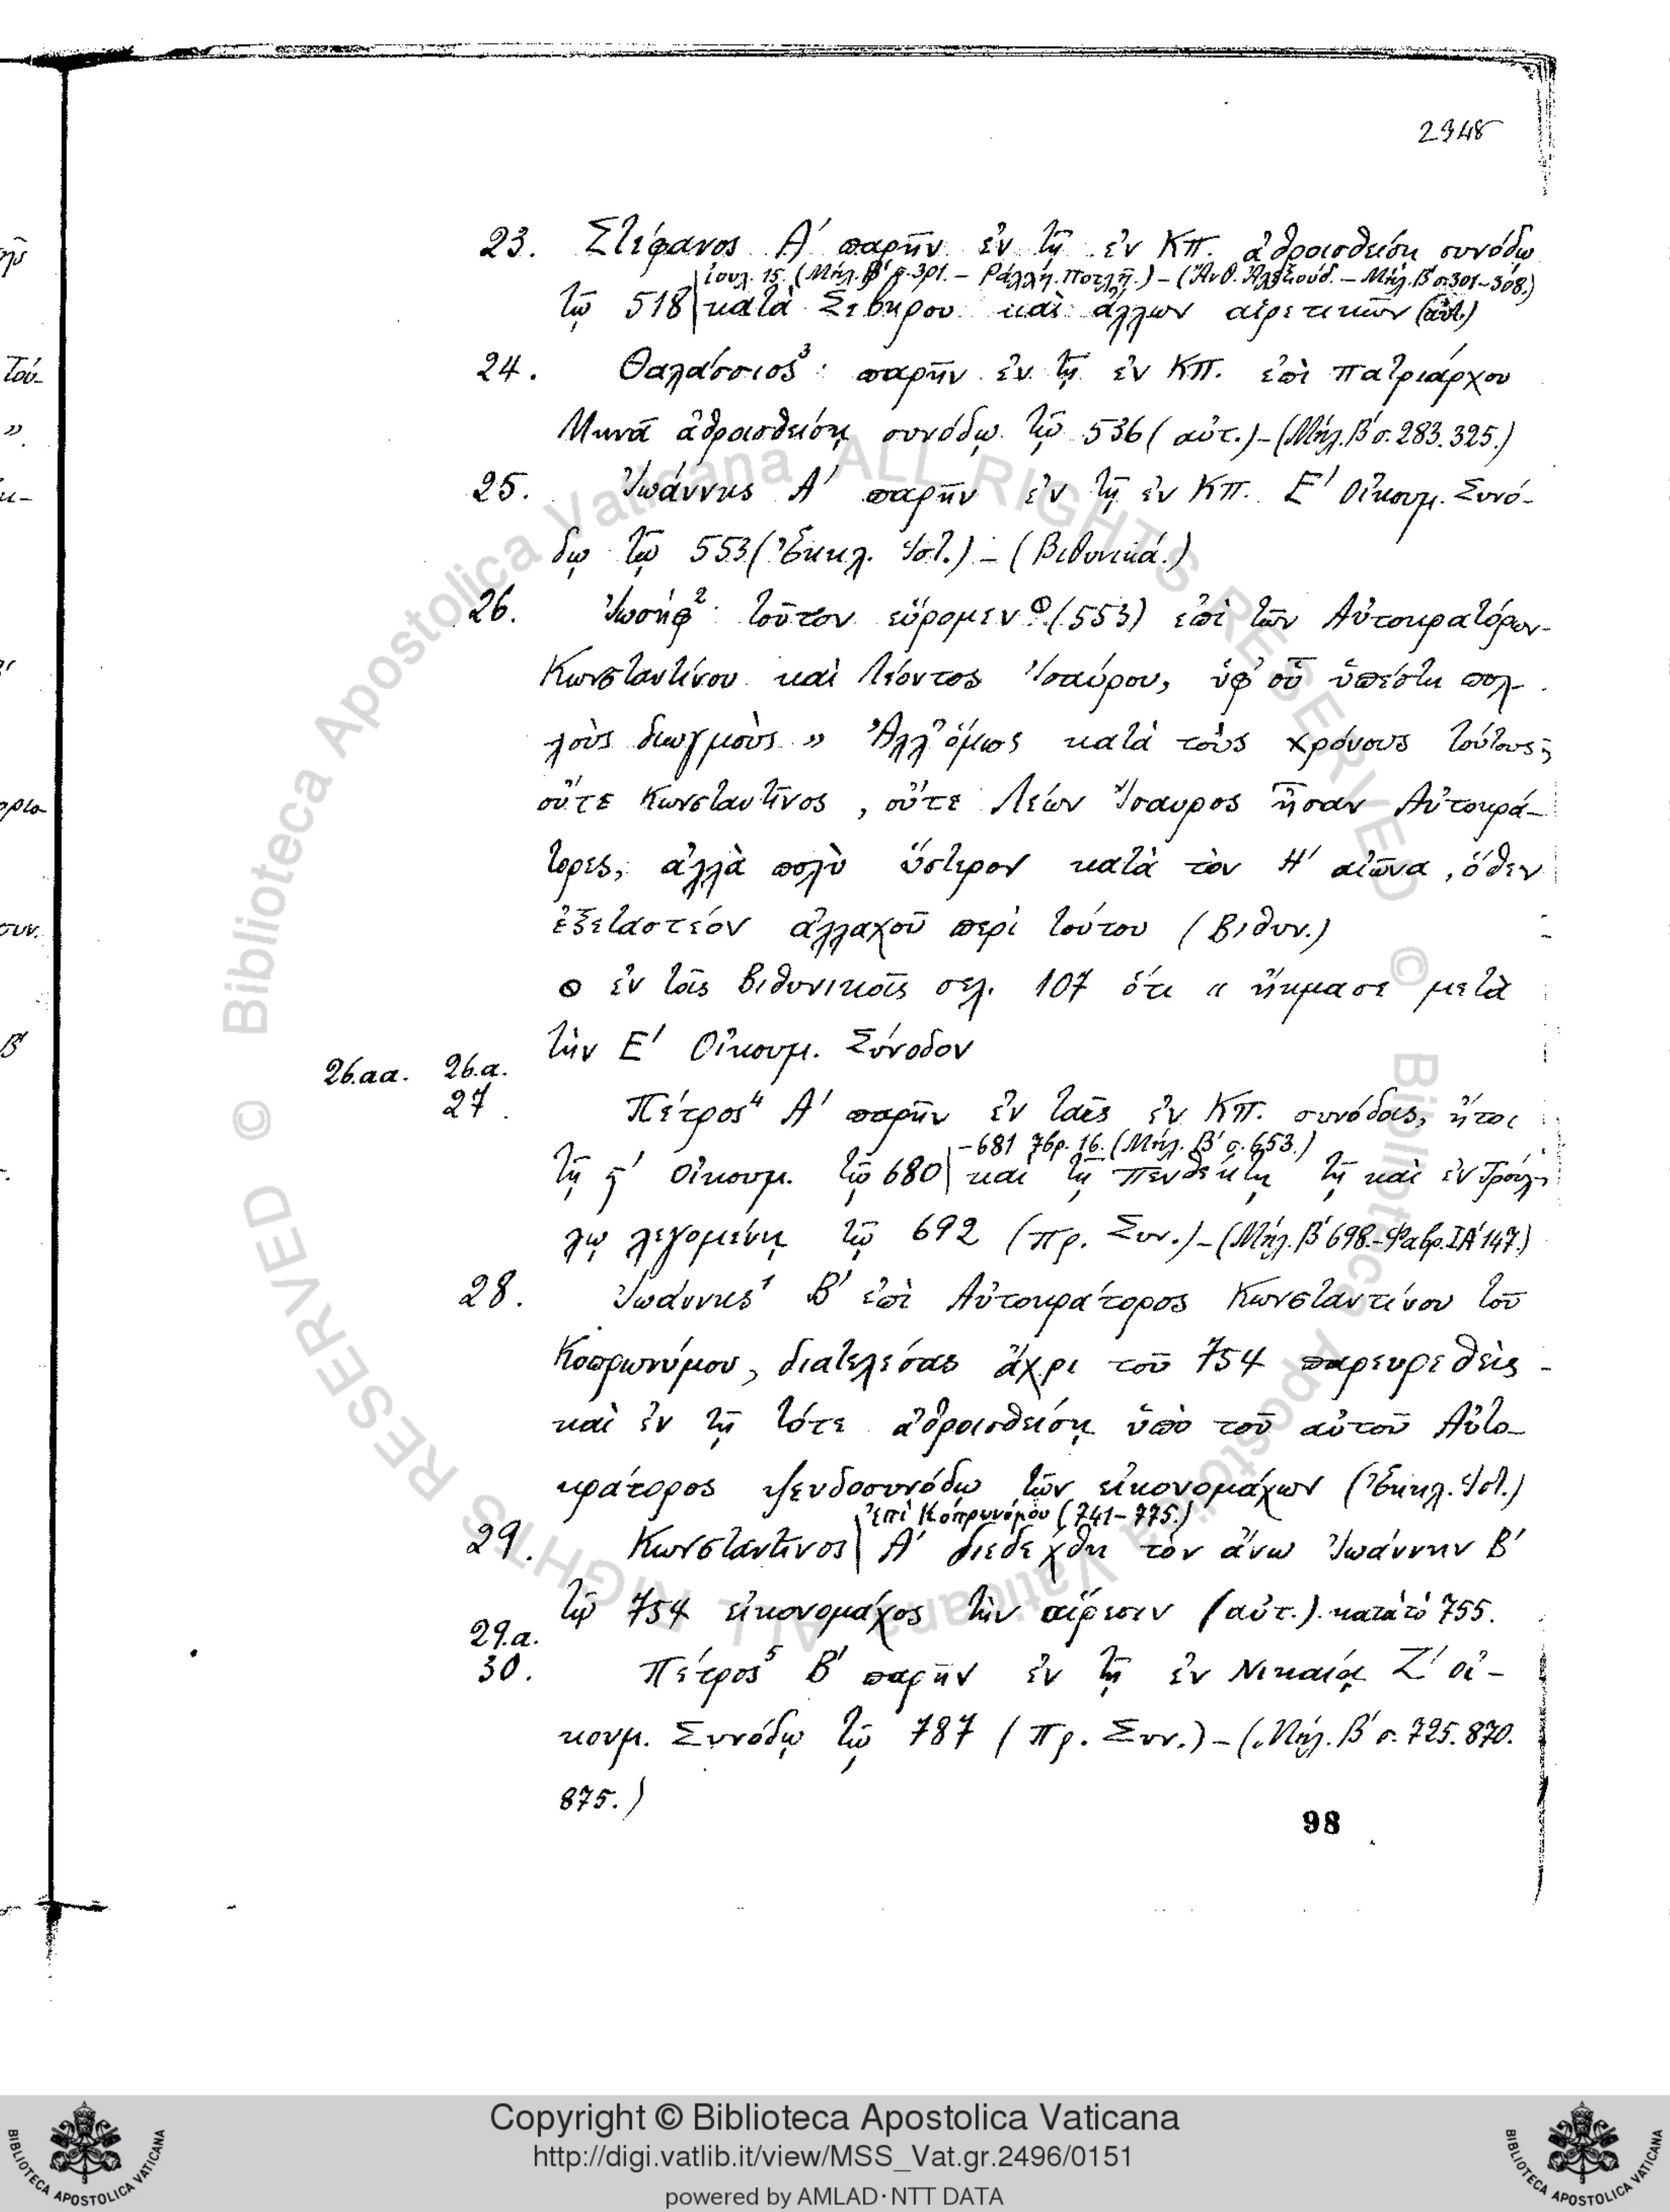 2348
23. Στέφανος Α' παρῆν ἐν τῇ ἐν ΚΠ. ἀθροισθείσῃ συνόδῳ
Ἰουλ. 15. (Μήλ. Β' σ. 301. – Ράλλῃ. Ποτλῇ.) – (Ἀνθ. Ἀλεξούδ. – Μήλ. Β' σ. 301–308.)
τῷ 518 κατὰ Σεβήρου καὶ ἄλλων αἱρετικῶν (αὐτ.)
24. Θαλάσσιος³: παρῆν ἐν τῇ ἐν ΚΠ. ἐπὶ πατριάρχου
Μηνᾶ ἀθροισθείσῃ συνόδῳ τῷ 536 (αὐτ.) – (Μήλ. Β' σ. 283. 325.)
25. Ἰωάννης Α' παρῆν ἐν τῇ ἐν ΚΠ. Ε' Οἰκουμ. Συνό-
δῳ τῷ 553 (Ἐκκλ. Ἱστ.) – (Βιθυνικά.)
26. Ἰωσήφ²: τοῦτον εὕρομεν (553) ἐπὶ τῶν Αὐτοκρατόρων
Κωνσταντίνου καὶ Λέοντος Ἰσαύρου, ὑφ' οὗ ὑπέστη πολ-
λοὺς διωγμοὺς » Ἀλλ' ὅμως κατὰ τοὺς χρόνους τούτους,
οὔτε Κωνσταντῖνος, οὔτε Λέων Ἴσαυρος ἦσαν Αὐτοκρά-
τορες, ἀλλὰ πολὺ ὕστερον κατὰ τὸν Η' αἰῶνα, ὅθεν
ἐξεταστέον ἀλλαχοῦ περὶ τούτου (Βιθυν.)
ἐν τοῖς Βιθυνικοῖς σελ. 107 ὅτι « ἤκμασε μετὰ
τὴν Ε' Οἰκουμ. Σύνοδον
26.αα. 26.α.
27. Πέτρος⁴ Α' παρῆν ἐν ταῖς ἐν ΚΠ. συνόδοις, ἤτοι
– 681 7βρ. 16. (Μήλ. Β' σ. 653.)
τῇ ϛ' Οἰκουμ. τῷ 680 καὶ τῇ Πενθέκτῃ τῇ καὶ ἐν Τρούλ-
λῳ λεγομένῃ τῷ 692 (Πρ. Συν.) – (Μήλ. Β' 698. – Φαβρ. ΙΑ' 147.)
28. Ἰωάννης¹ Β' ἐπὶ Αὐτοκράτορος Κωνσταντίνου τοῦ
Κοπρωνύμου, διατελέσας ἄχρι τοῦ 754 παρευρεθεὶς
καὶ ἐν τῇ τότε ἀθροισθείσῃ ὑπὸ τοῦ αὐτοῦ Αὐτο-
κράτορος ψευδοσυνόδῳ τῶν εἰκονομάχων (Ἐκκλ. Ἱστ.)
ἐπὶ Κοπρωνύμου (741–775.)
29. Κωνσταντῖνος Α' διεδέχθη τὸν ἄνω Ἰωάννην Β'
τῷ 754 εἰκονομάχος τὴν αἵρεσιν (αὐτ.). κατὰ τὸ 755.
29.α.
30. Πέτρος⁵ Β' παρῆν ἐν τῇ ἐν Νικαίᾳ Ζ' οἰ-
κουμ. Συνόδῳ τῷ 787 (Πρ. Συν.) – (Μήλ. Β' σ. 725. 870.
875.)
98
© Biblioteca Apostolica Vaticana ALL RIGHTS RESERVED
© Biblioteca Apostolica Vaticana ALL RIGHTS RESERVED
Copyright © Biblioteca Apostolica Vaticana
http://digi.vatlib.it/view/MSS_Vat.gr.2496/0151
powered by AMLAD·NTT DATA
BIBLIOTECA APOSTOLICA VATICANA
BIBLIOTECA APOSTOLICA VATICANA